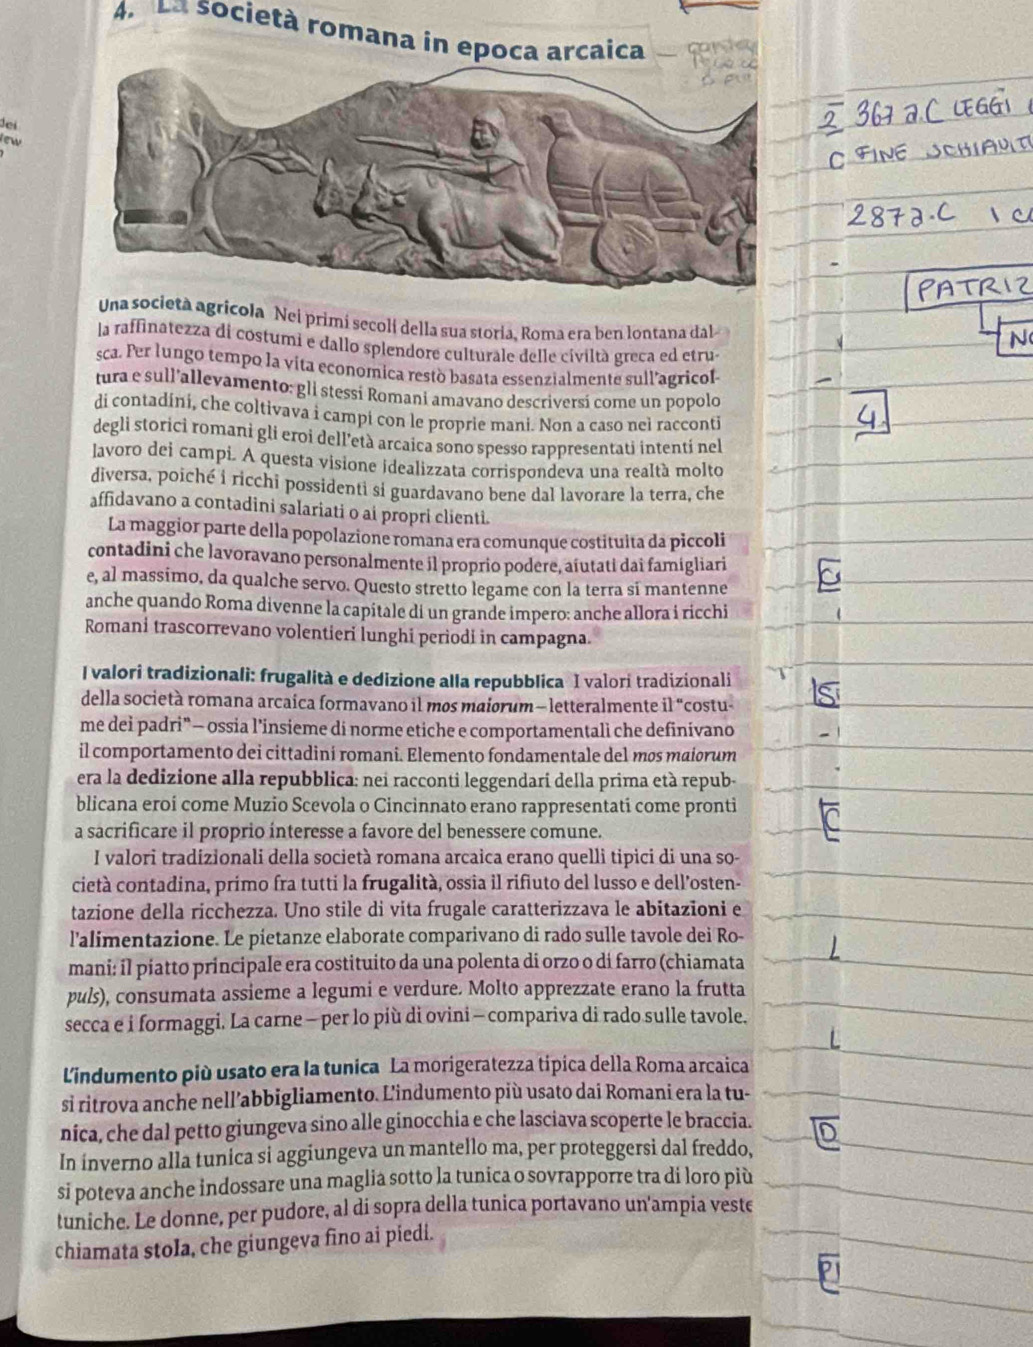 4. La società romana in epoca arcaica
dei
Una società agricola Nei primi secoli della sua storia, Roma era ben lontana dal-
la raffinatezza di costumi e dallo splendore culturale delle civiltà greca ed etru-
sca. Per lungo tempo la vita economica restò basata essenzialmente sull'agricol-
tura e sull'allevamento: gli stessi Romani amavano descriversi come un popolo
di contadini, che coltivava i campi con le proprie mani. Non a caso nei racconti
degli storici romani gli eroi dell'età arcaica sono spesso rappresentati intenti nel
lavoro dei campi. A questa visione idealizzata corrispondeva una realtà molto
diversa, poiché i ricchi possidenti si guardavano bene dal lavorare la terra, che
affidavano a contadini salariati o ai propri clienti.
La maggior parte della popolazione romana era comunque costituita da piccoli
contadini che lavoravano personalmente il proprio podere, aiutati dai famigliari
e, al massimo, da qualche servo. Questo stretto legame con la terra si mantenne
anche quando Roma divenne la capitale di un grande impero: anche allora i ricchi
Romani trascorrevano volentieri lunghi periodi in campagna.
I valori tradizionali: frugalità e dedizione alla repubblica I valori tradizionali
della società romana arcaica formavano il mos maiorum – letteralmente il "costu-
me dei padri" – ossia l'insieme di norme etiche e comportamentali che definivano
il comportamento dei cittadini romani. Elemento fondamentale del mos maiorum
era la dedizione alla repubblica: nei racconti leggendari della prima età repub-
blicana eroi come Muzio Scevola o Cincinnato erano rappresentati come pronti
a sacrificare il proprio interesse a favore del benessere comune.
I valori tradizionali della società romana arcaica erano quelli tipici di una so-
cietà contadina, primo fra tutti la frugalità, ossia il rifiuto del lusso e dell'osten-
tazione della ricchezza. Uno stile di vita frugale caratterizzava le abitazioni e
l'alimentazione. Le pietanze elaborate comparivano di rado sulle tavole dei Ro-
mani: il piatto principale era costituito da una polenta di orzo o di farro (chiamata
puls), consumata assieme a legumi e verdure. Molto apprezzate erano la frutta
secca e i formaggi. La carne – per lo più di ovini – compariva di rado sulle tavole.
L'indumento più usato era la tunica La morigeratezza tipica della Roma arcaica
si ritrova anche nell'abbigliamento. L'indumento più usato dai Romani era la tu-
nica, che dal petto giungeva sino alle ginocchia e che lasciava scoperte le braccia.
In inverno alla tunica si aggiungeva un mantello ma, per proteggersi dal freddo,
si poteva anche indossare una maglia sotto la tunica o sovrapporre tra di loro più
tuniche. Le donne, per pudore, al di sopra della tunica portavano un'ampia veste
chiamata stola, che giungeva fino ai piedi.
2 367 a.C LEGGI
C FINE SCHIAVIT
287 a.C
PATRIZ
N
4.
C
S
C
L
L
D
P